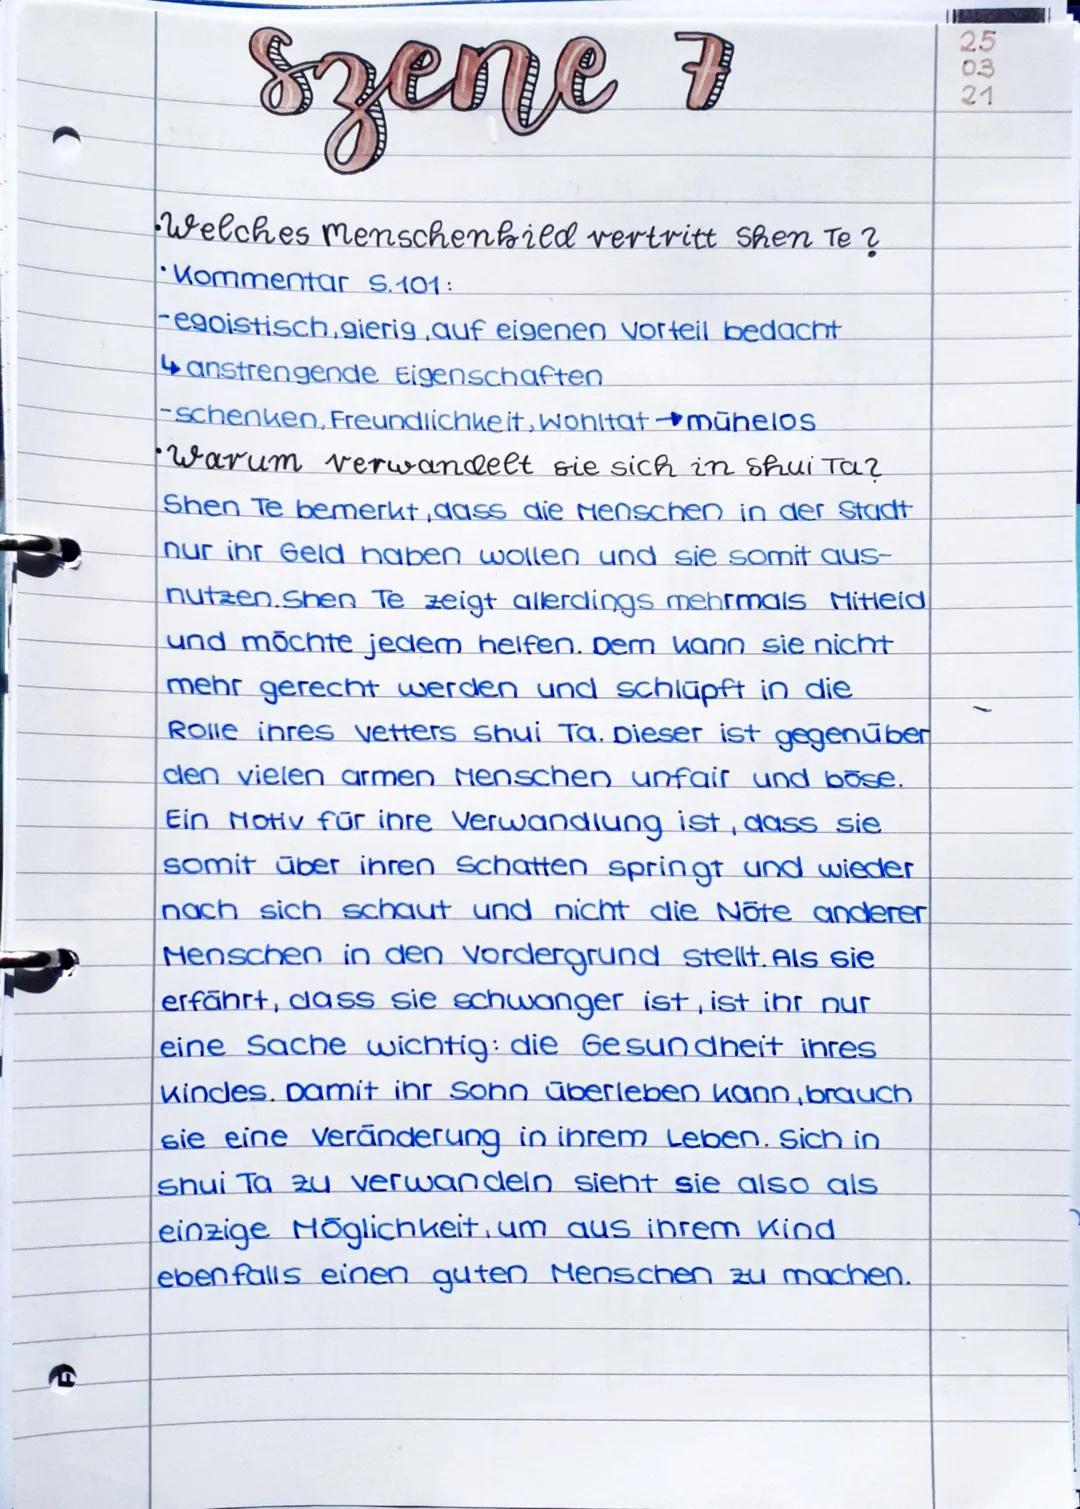 Szene 7
25
03
21
·Welches Menschenbild vertritt Shen Te?
·Kommentar S.101:
-egoistisch, gierig, auf eigenen Vorteil bedacht
↳ anstrengende Eigenschaften
-schenken, Freundlichkeit, Wohltat → mühelos
·Warum verwandelt sie sich in Shui Ta?
Shen Te bemerkt, dass die Menschen in der Stadt
nur ihr Geld haben wollen und sie somit aus-
nutzen. Shen Te zeigt allerdings mehrmals Mitleid
und möchte jedem helfen. Dem kann sie nicht
mehr gerecht werden und schlüpft in die
Rolle ihres Vetters Shui Ta. Dieser ist gegenüber
den vielen armen Menschen unfair und böse.
Ein Motiv für ihre Verwandlung ist, dass sie
somit über ihren Schatten springt und wieder
nach sich schaut und nicht die Nöte anderer
Menschen in den Vordergrund stellt. Als sie
erfährt, dass sie schwanger ist, ist ihr nur
eine Sache wichtig: die Gesundheit ihres
Kindes. Damit ihr Sohn überleben kann, brauch
sie eine Veränderung in ihrem Leben. Sich in
Shui Ta zu verwandeln sieht sie also als
einzige Möglichkeit, um aus ihrem Kind
ebenfalls einen guten Menschen zu machen.